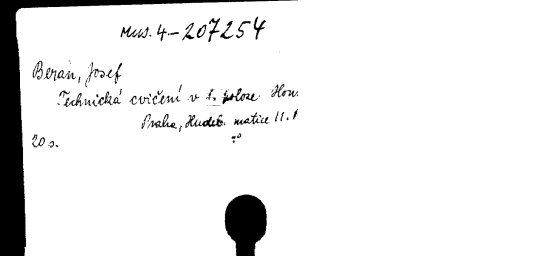 Mus. 4-207254
Beran, Josef
Technická cvičení v 1. poloze. Hous
Praha, Hudeb. matice U.
20 s. 4°